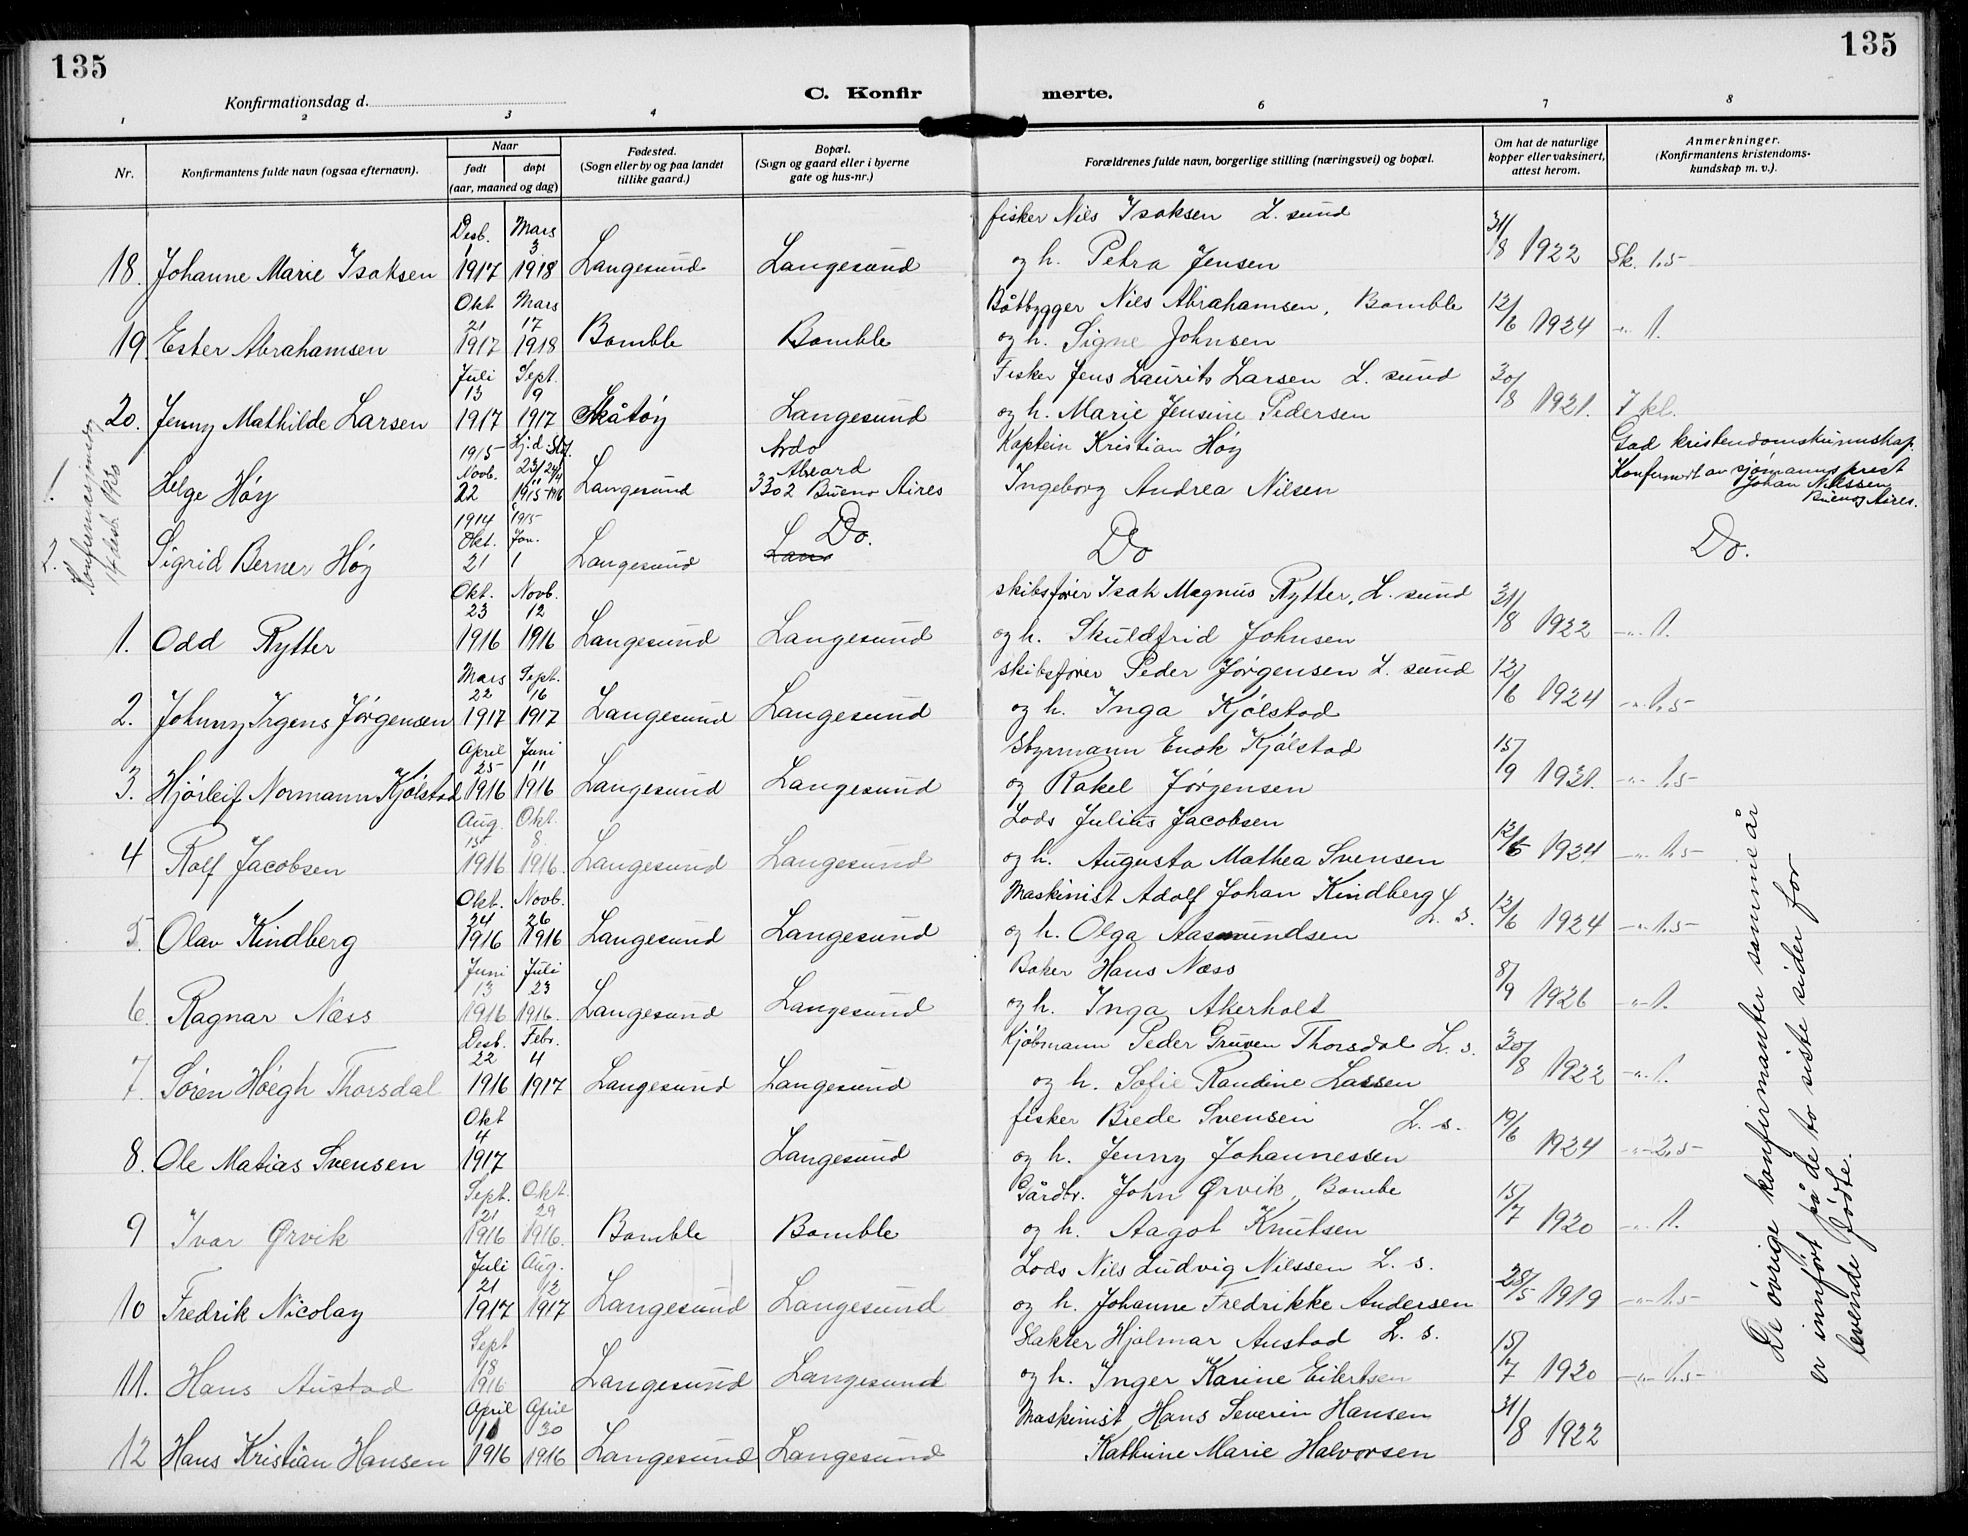 135
135
Konfirmationsdag d.
C. Konfir
merte.
1 2 3 4 6 7 8
Nr.
Konfirmantens fulde navn (ogsaa efternavn).
Naar
født
døpt
(aar, maaned og dag)
Fødested.
(Sogn eller by og paa landet
tillike gaard.)
Bopæl.
(Sogn og gaard eller i byerne
gate og hus-nr.)
Forældrenes fulde navn, borgerlige stilling (næringsvei) og bopæl.
Om hat de naturlige
kopper eller vaksinert,
attest herom.
Anmerkninger.
(Konfirmantens kristendoms-
kundskap m. v.).
Desb. Mars fisker Nils Isaksen L. sund
1 3 31/8 1922
18. Johanne Marie Isaksen 1917 1918 Langesund Langesund og h. Petra Jensen Sk. 1.5
Okt. Mars Båtbygger Nils Abrahamsen, Bamble
21 17 12/6 1924
19 Ester Abrahamsen 1917 1918 Bamble Bamble og h. Signe Johnsen -"- 1.
Juli Sept. Fisker Jens Laurits Larsen L. sund
13 9 30/8 1921.
20. Jenny Mathilde Larsen 1917 1917 Skåtøy Langesund og h. Marie Jensine Pedersen 7 kl.
Konfirmasjonsdag
14 desb. 1930
1915 Hj.d. Kaptein Kristian Høy God kristendomskunnskap.
Novb.
1. Helge Høy 22 1915-1916 Langesund 3302 Bueno Aires Ingeborg Andrea Nilsen Konfirmert av sjømannsprest
Johan Nilssen
Buenos Aires.
1914 1915
Okt. Jan. Do.
2. Sigrid Berner Høy 21 1 Langesund Do Do.
Okt. Novb. skibsfører Isak Magnus Rytter, L. sund
23 12 31/8 1922
1. Odd Rytter 1916 1916 Langesund Langesund og h. Skuldfrid Johnsen -"- 1.
Mars Sept. skibsfører Peder Jørgensen L. sund
22 16 12/6 1924
2. Johnny Irgens Jørgensen 1917 1917 Langesund Langesund og h. Inga Kjølstad -"- 1.5
April Juni Styrmann Enok Kjølstad
25 11 15/9 1921.
3. Hjørleif Normann Kjølstad 1916 1916 Langesund Langesund og Rakel Jørgensen -"- 1.5
Aug. Okt. Lods Julius Jacobsen
15 8. 12/6 1924
4 Rolf Jacobsen 1916 1916. Langesund Langesund og h. Augusta Mathea Svensen -"- 1.5
Okt. Novb. Maskinist Adolf Johan Kindberg L. s.
24 26 12/6 1924
5. Olav Kindberg 1916 1916 Langesund Langesund og h. Olga Aasmundsen -"- 1.5
Juni Juli Baker Hans Næss
13 23 8/9 1926
6. Ragnar Næss 1916 1916. Langesund Langesund og h. Inga Akerholt -"- 1.
Desb. Febr. Kjøbmann Peder Gruven Thorsdal L. s.
22 4 30/8 1922
7. Søren Høegh Thorsdal 1916 1917 Langesund Langesund og h. Sofie Randine Lassen -"- 1.
Okt fisker Brede Svensen L. s.
4 19/6 1924
8. Ole Matias Svensen 1917 Langesund og h. Jenny Johannessen -"- 2.5
Sept. Okt. Gårdbr. John Ørvik, Bamble
21 29 15/7 1920
9 Ivar Ørvik 1916 1916. Bamble Bamble og h. Aagot Knutsen -"- 1.
Juli Aug. Lods Nils Ludvig Nilssen L. s.
21 12 28/5 1919
10 Fredrik Nicolay 1917 1917 Langesund Langesund og h. Johanne Fredrikke Andersen -"- 1.5
Sept Slakter Hjalmar Austad L. s.
18 15/7 1920
11. Hans Austad 1916 Langesund Langesund og h. Inger Karine Eilertsen -"- 1.5
April April Maskinist Hans Severin Hansen
11 30 31/8 1922
12 Hans Kristian Hansen 1916 1916 Langesund Langesund Kathrine Marie Halvorsen
De øvrige konfirmanter samme år
er innført på de to siste sider for
levende fødte.